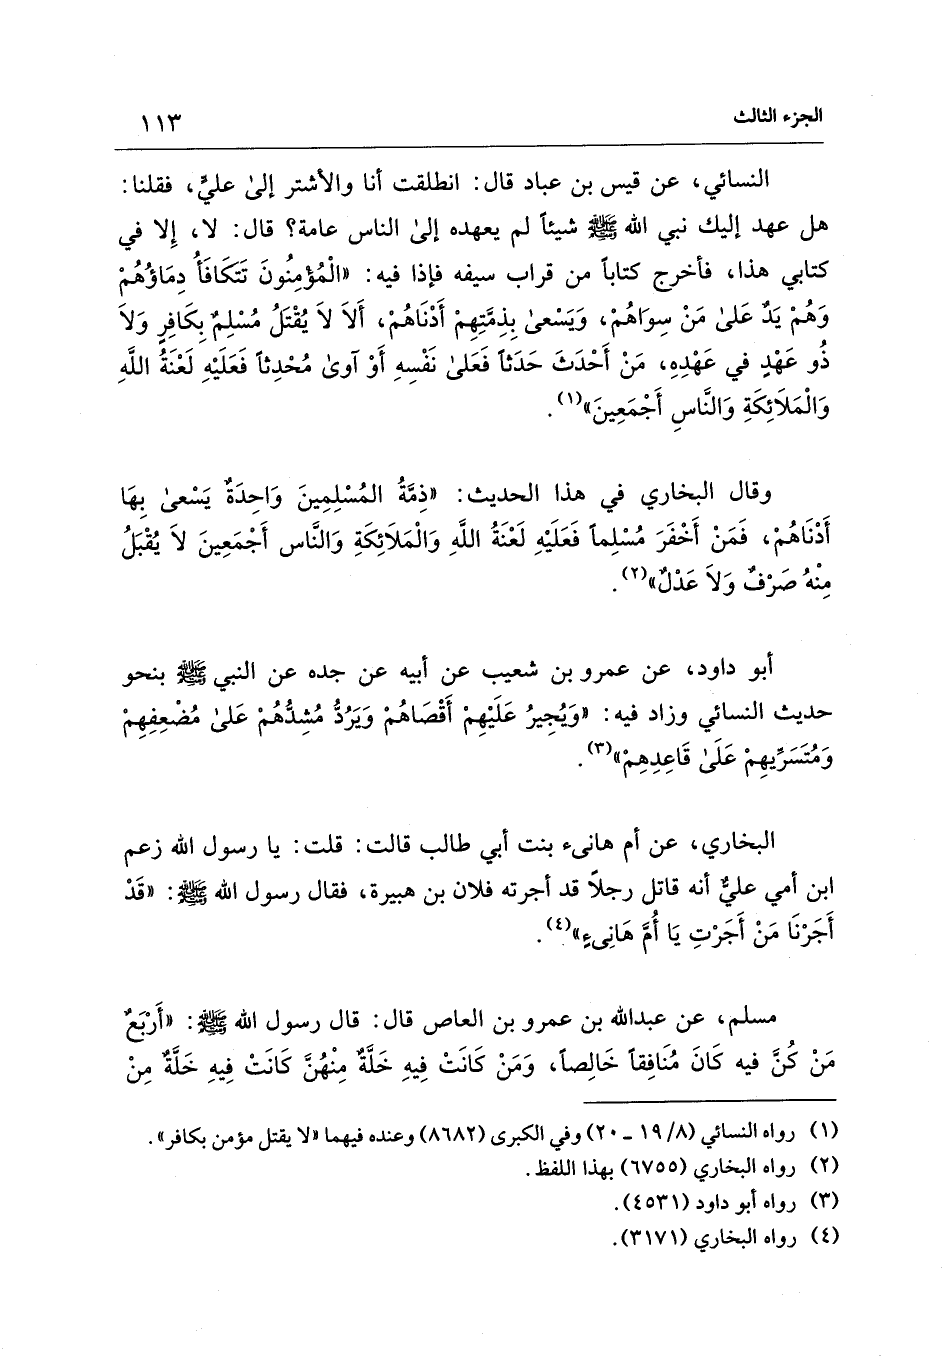 الجزء الثالث ١١٣
النسائي، عن قيس بن عباد قال: انطلقت أنا والأشتر إلىٰ عليٍّ، فقلنا:
هل عهد إليك نبي الله ﷺ شيئاً لم يعهده إلىٰ الناس عامة؟ قال: لا، إلا في
كتابي هذا، فأخرج كتاباً من قراب سيفه فإذا فيه: «الْمُؤْمِنُونَ تَتَكَافَأُ دِمَاؤُهُمْ
وَهُمْ يَدٌ عَلىٰ مَنْ سِوَاهُمْ، وَيَسْعىٰ بِذِمَّتِهِمْ أَدْنَاهُمْ، أَلاَ لاَ يُقْتَلُ مُسْلِمٌ بِكَافِرٍ وَلاَ
ذُو عَهْدٍ في عَهْدِهِ، مَنْ أَحْدَثَ حَدَثاً فَعَلىٰ نَفْسِهِ أَوْ آوىٰ مُحْدِثاً فَعَلَيْهِ لَعْنَةُ اللَّهِ
وَالْمَلَائِكَةِ وَالنَّاسِ أَجْمَعِينَ»(١).
وقال البخاري في هذا الحديث: «ذِمَّةُ المُسْلِمِينَ وَاحِدَةٌ يَسْعىٰ بِهَا
أَدْنَاهُمْ، فَمَنْ أَخْفَرَ مُسْلِماً فَعَلَيْهِ لَعْنَةُ اللَّهِ وَالْمَلَائِكَةِ وَالنَّاس أَجْمَعِينَ لاَ يُقْبَلُ
مِنْهُ صَرْفٌ وَلاَ عَدْلٌ»(٢).
أبو داود، عن عمرو بن شعيب عن أبيه عن جده عن النبي ﷺ بنحو
حديث النسائي وزاد فيه: «وَيُجِيرُ عَلَيْهِمْ أَقْصَاهُمْ وَيَرُدُّ مُشِدُّهُمْ عَلىٰ مُضْعِفِهِمْ
وَمُتَسَرِّيهِمْ عَلَىٰ قَاعِدِهِمْ»(٣).
البخاري، عن أم هانىء بنت أبي طالب قالت: قلت: يا رسول الله زعم
ابن أمي عليٌّ أنه قاتل رجلاً قد أجرته فلان بن هبيرة، فقال رسول الله ﷺ: «قَدْ
أَجَرْنَا مَنْ أَجَرْتِ يَا أُمَّ هَانِىءٍ»(٤).
مسلم، عن عبدالله بن عمرو بن العاص قال: قال رسول الله ﷺ: «أَرْبَعٌ
مَنْ كُنَّ فيه كَانَ مُنَافِقاً خَالِصاً، وَمَنْ كَانَتْ فِيهِ خَلَّةٌ مِنْهُنَّ كَانَتْ فِيهِ خَلَّةٌ مِنْ
(١) رواه النسائي (٨/ ١٩ ـ ٢٠) وفي الكبرى (٨٦٨٢) وعنده فيهما «لا يقتل مؤمن بكافر».
(٢) رواه البخاري (٦٧٥٥) بهذا اللفظ.
(٣) رواه أبو داود (٤٥٣١).
(٤) رواه البخاري (٣١٧١).